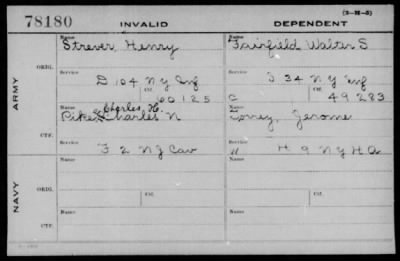 78180 INVALID DEPENDENT (3-M-5)
Name Name
Strever Henry Fairfield Walter S
ORIG.
Service Ctf. Service Ctf.
D 104 N Y Inf 34 N Y Inf
60125 C 49283
ARMY
Name Name
Charles H.
Pike Charles N Torrey, Jerome
CTF.
Service Ctf. Service Ctf.
F 2 N J Cav W H 9 N Y H A
Name Name
ORIG.
Service Ctf. Service Ctf.
NAVY
Name Name
CTF.